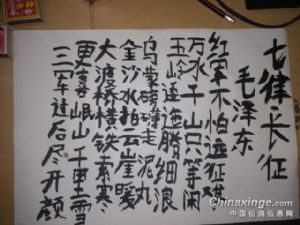 七律·长征
毛泽东
红军不怕远征难
万水千山只等闲
五岭逶迤腾细浪
乌蒙磅礴走泥丸
金沙水拍云崖暖
大渡桥横铁索寒
更喜岷山千里雪
三军过后尽开颜
Chinaxinge.com
中国信鸽信息网